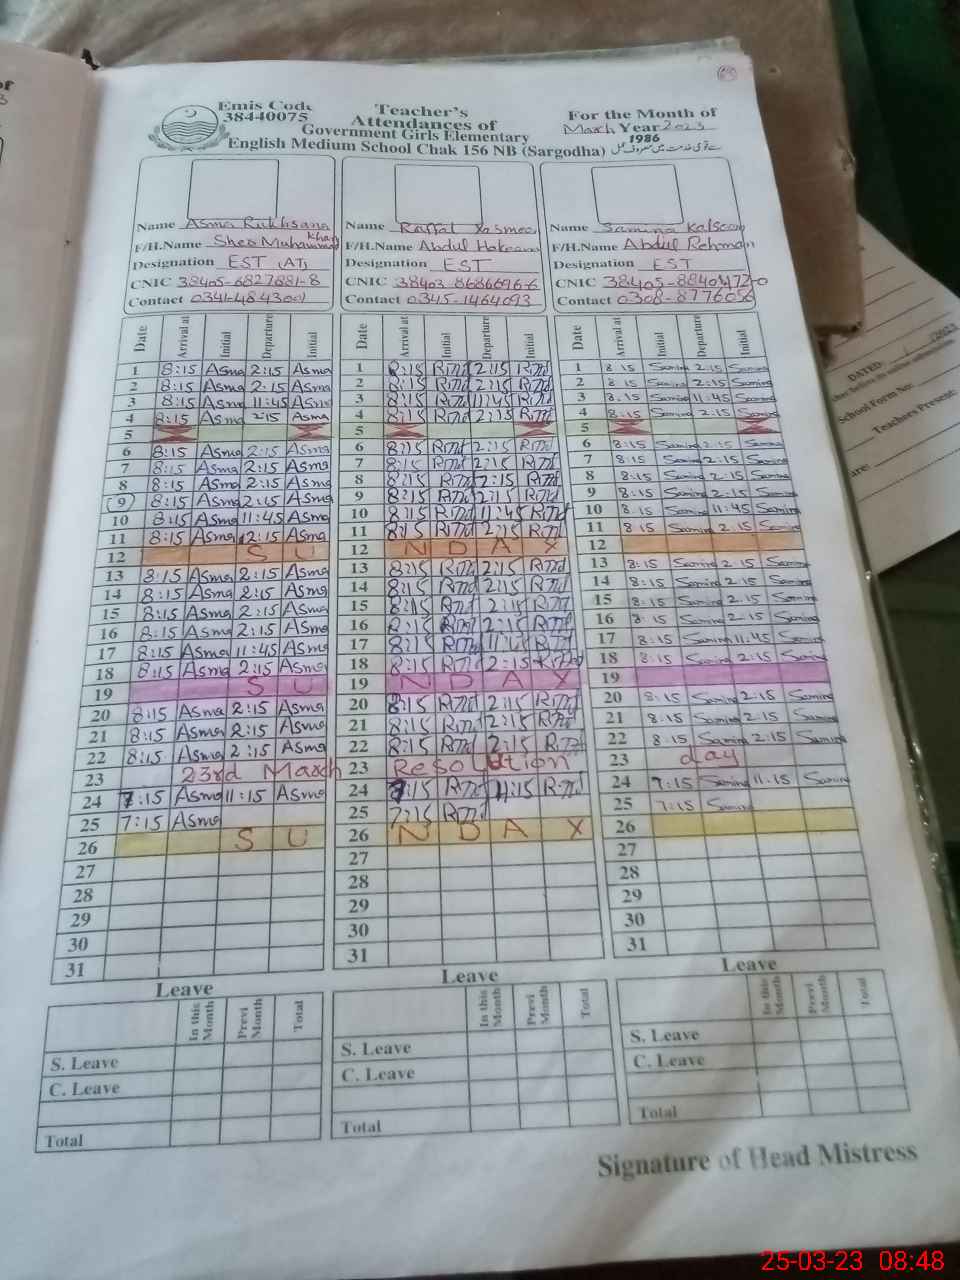 Emis Code
38440075
Teacher's
Attendances of
Government Girls Elementary
English Medium School Chak 156 NB (Sargodha)
For the Month of
March Year 2023
1986
Name Asma Rukhsana
F/H.Name Sher Muhammad Khan
Designation EST (AT)
CNIC 38405-6827881-8
Contact
Name Yasmeen
F/H.Name Abdul Hakeem
Designation EST
CNIC 38403-8686096-6
Contact 0345-1464093
Name Samina Kalsoom
F/H.Name Abdul Rehman
Designation EST
CNIC
Contact 0308-8776056
Date Arrival at Initial Departure Initial
1 8:15 Asma 2:15 Asma
2 8:15 Asma 2:15 Asma
3 8:15 Asma 11:45 Asma
4 8:15 Asma 2:15 Asma
5
6 8:15 Asma 2:15 Asma
7 8:15 Asma 2:15 Asma
8 8:15 Asma 2:15 Asma
9 8:15 Asma 2:15 Asma
10 8:15 Asma 11:45 Asma
11 8:15 Asma 2:15 Asma
12 S U
13 8:15 Asma 2:15 Asma
14 8:15 Asma 2:15 Asma
15 8:15 Asma 2:15 Asma
16 8:15 Asma 2:15 Asma
17 8:15 Asma 11:45 Asma
18 8:15 Asma 2:15 Asma
19 S U
20 8:15 Asma 2:15 Asma
21 8:15 Asma 2:15 Asma
22 8:15 Asma 2:15 Asma
23 23rd March
24 7:15 Asma 11:15 Asma
25 7:15 Asma
26 S U
27
28
29
30
31
Date Arrival at Initial Departure Initial
1 8:15 2:15
2 8:15 2:15
3 8:15 11:45
4 8:15 2:15
5
6 8:15 2:15
7 8:15 2:15
8 8:15 2:15
9 8:15 2:15
10 8:15 11:45
11 8:15 2:15
12 N D A Y
13 8:15 2:15
14 8:15 2:15
15 8:15 2:15
16 8:15 2:15
17 8:15 11:45
18 8:15 2:15
19 N D A Y
20 8:15 2:15
21 8:15 2:15
22 8:15 2:15
23 Resolution
24 11:15
25 7:15
26 N D A Y
27
28
29
30
31
Date Arrival at Initial Departure Initial
1 8:15 Samina 2:15 Samina
2 8:15 Samina 2:15 Samina
3 8:15 Samina 11:45 Samina
4 8:15 Samina 2:15 Samina
5
6 8:15 Samina 2:15 Samina
7 8:15 Samina 2:15 Samina
8 8:15 Samina 2:15 Samina
9 8:15 Samina 2:15 Samina
10 8:15 Samina 11:45 Samina
11 8:15 Samina 2:15 Samina
12
13 8:15 Samina 2:15 Samina
14 8:15 Samina 2:15 Samina
15 8:15 Samina 2:15 Samina
16 8:15 Samina 2:15 Samina
17 8:15 Samina 11:45 Samina
18 8:15 Samina 2:15 Samina
19
20 8:15 Samina 2:15 Samina
21 8:15 Samina 2:15 Samina
22 8:15 Samina 2:15 Samina
23 day
24 7:15 Samina 11:15 Samina
25 7:15 Samina
26
27
28
29
30
31
Leave
In this Month Previ Month Total
S. Leave
C. Leave
Total
Leave
In this Month Previ Month Total
S. Leave
C. Leave
Total
Leave
In this Month Previ Month Total
S. Leave
C. Leave
Total
Signature of Head Mistress
DATED / /2022
School Form No:
Teachers Present:
25-03-23 08:48